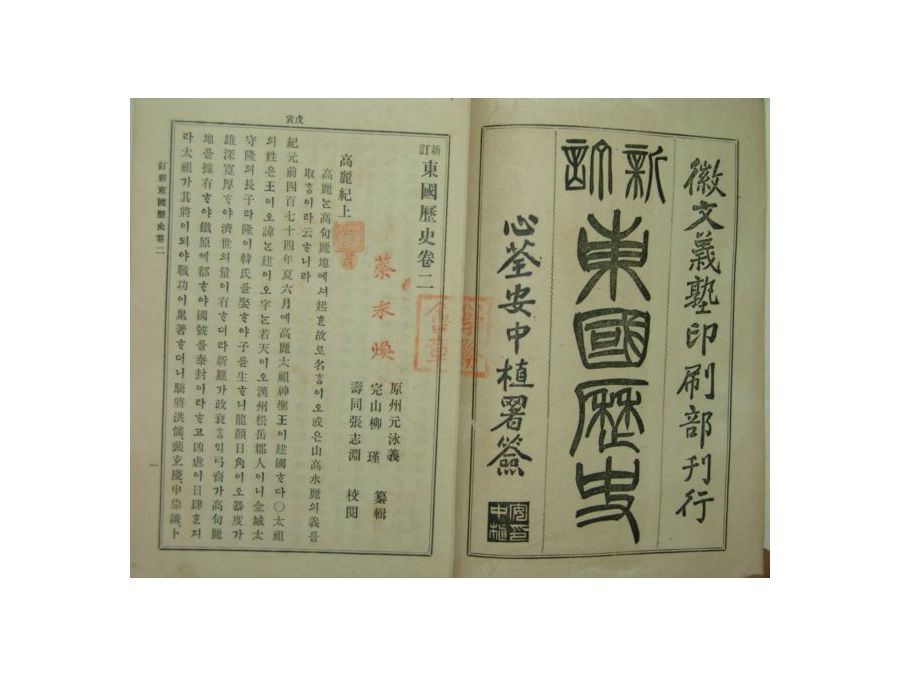 徽文義塾印刷部刊行
新訂
東國歷史
心荃安中植署簽
戊寅
新訂 東國歷史卷二
原州元泳義
完山柳 瑾 纂輯
壽同張志淵 校閱
蔡永煥
高麗紀上
高麗ᄂᆞᆫ高句麗地에셔起ᄒᆞᆫ故로名ᄒᆞᆷ이오或은山高水麗의義를
取ᄒᆞᆷ이라云ᄒᆞ니라
紀元前四百七十四年夏六月에高麗太祖神聖王이建國ᄒᆞ다〇太祖
의姓은王이오諱ᄂᆞᆫ建이오字ᄂᆞᆫ若天이오漢州松岳郡人이니金城太
守隆의長子라隆이韓氏를娶ᄒᆞ야子를生ᄒᆞ니龍顏日角이오器度가
雄深寬厚ᄒᆞ야濟世의量이有ᄒᆞ더라新羅가政衰ᄒᆞᆷ弓裔가高句麗
地를據有ᄒᆞ야鐵原에都ᄒᆞ야國號를泰封이라ᄒᆞ고凶虐이日肆ᄒᆞᆫ지
라太祖가其將이되야戰功이累著ᄒᆞ더니騎將洪儒、裴玄慶、申崇謙、卜
新訂東國歷史卷二
一